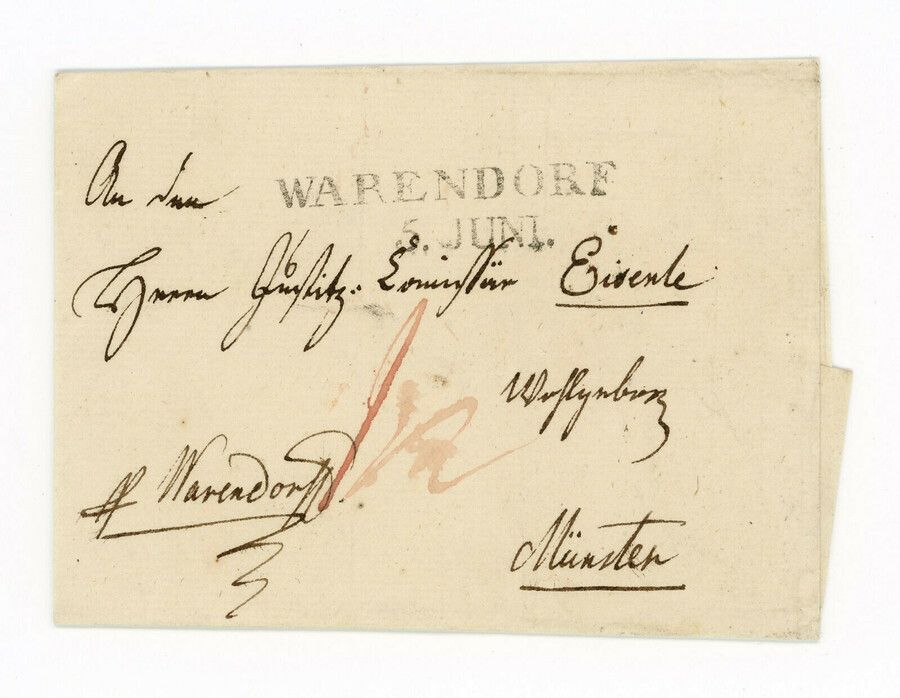 An den
WARENDORF
5. JUNI.
Herrn Justitz-Comissär Eisenle
Wohlgeborn
Warendorff
Münster